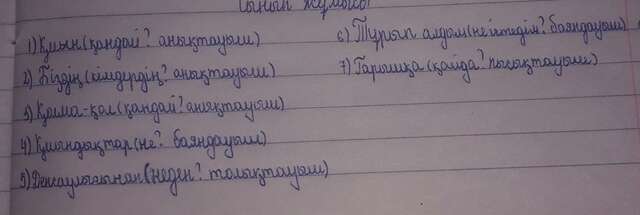 Сынып жұмысы
1) Қиын (қандай? анықтауыш)
2) Біздің (кімдердің? анықтауыш)
3) Қыма-қол (қандай? анықтауыш)
4) Қиындықтар (не? баяндауыш)
5) Денсаулығынан (неден? толықтауыш)
6) Тұрып алдым (не істедім? баяндауыш)
7) Ғарышқа (қайда? пысықтауыш)